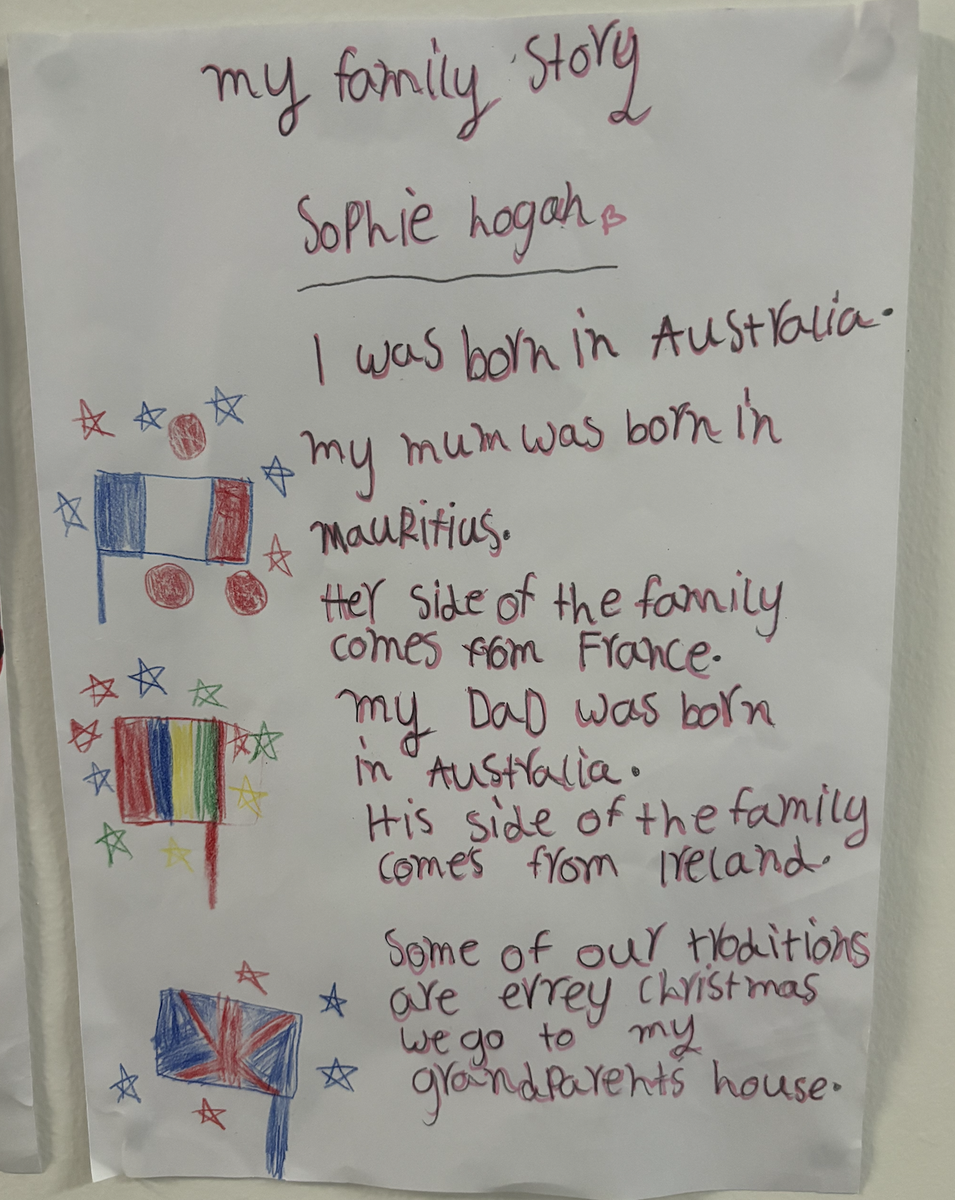 my family story
Sophie hogan B
I was born in Australia.
my mum was born in
mauRitius.
Her side of the family
comes from France.
my DaD was born
in Australia.
His side of the family
comes from Ireland.
Some of our troditions
are errey christmas
we go to my
grandparents house.